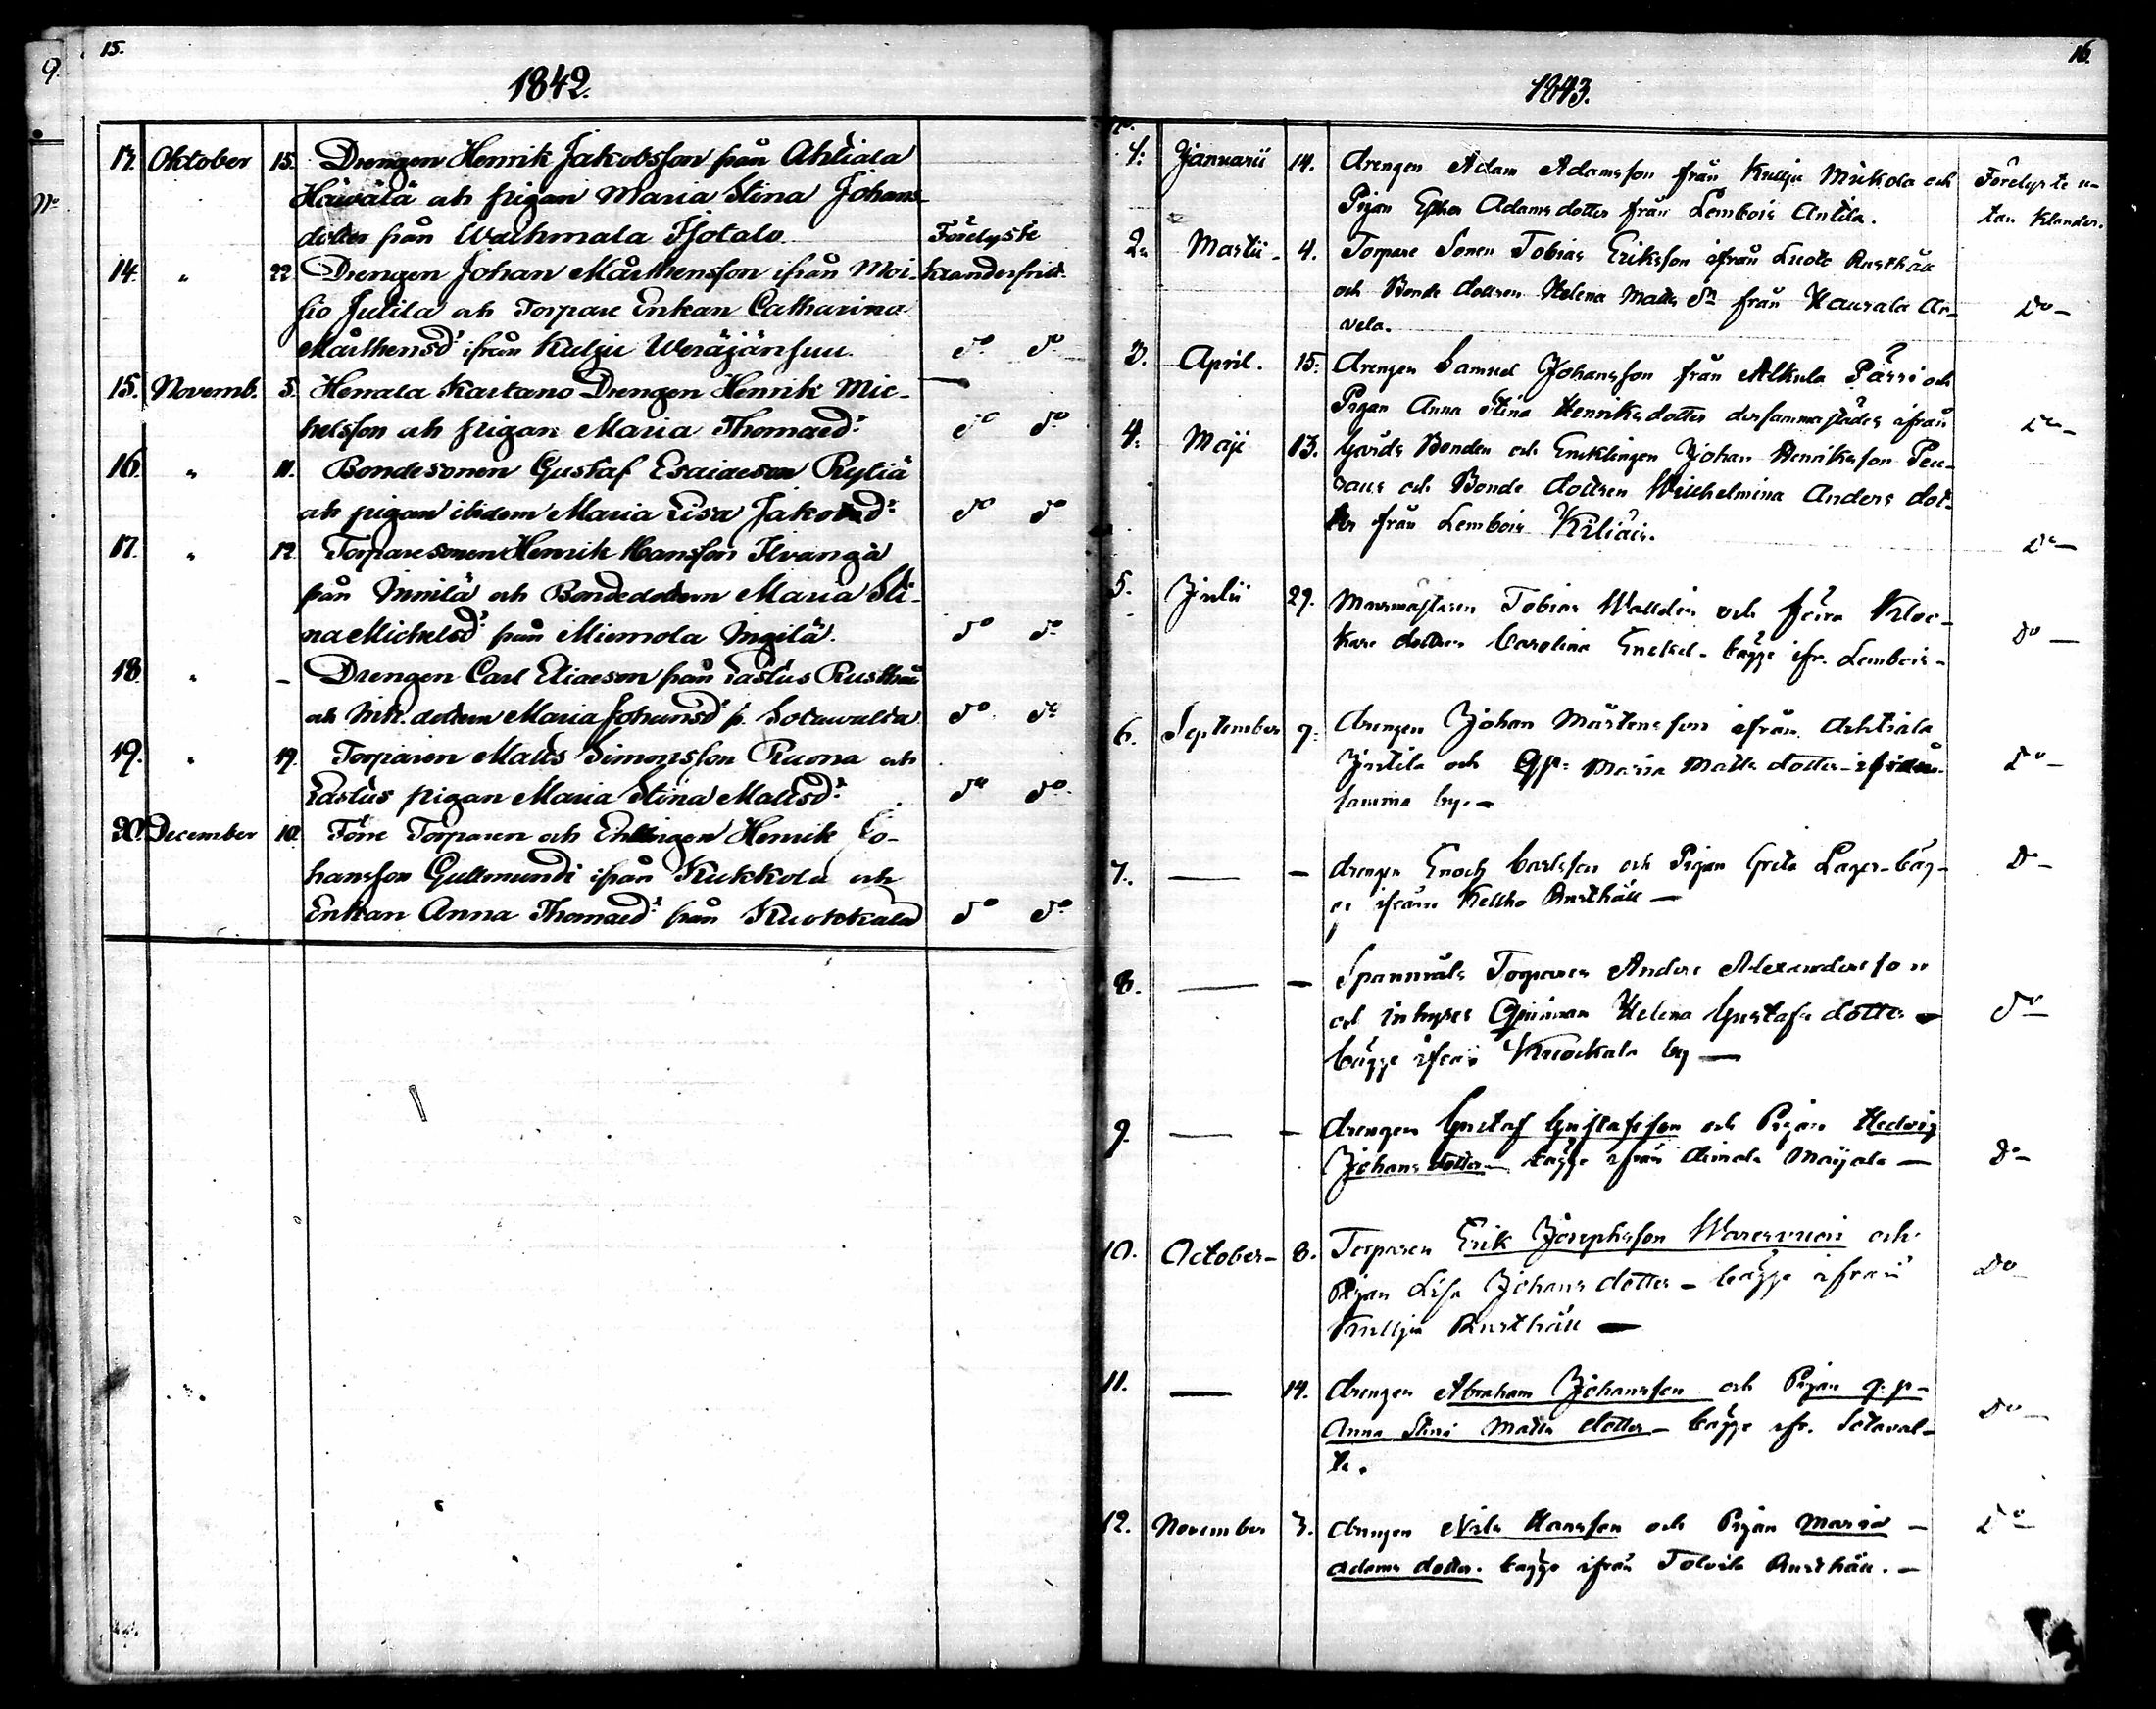 15.
1842.
13. Oktober 15. Drengen Henrik Jakobsson från Ahtiala
Häivälä och pigan Maria Stina Johans-
dotter från Wachmala Isotalo Förelyste
14. " 22 Drengen Johan Mårthensson ifrån Moi- klanderfritt
sio Jutila och Torpare Enkan Catharina
Mårthensd:r ifrån Kulju Weräjänsuu d:o d:o
15. Novemb. 5. Herrala Kartano Drengen Henrik Mic-
helsson och pigan Maria Thomaed:r d:o d:o
16. " 11. Bondesonen Gustaf Esaiaeson Ryliä
och pigan ibidem Maria Lisa Jakobsd:r d:o d:o
17. " 12. Torparesonen Henrik Hansson Ilvangä
från Innilä och Bondedottern Maria Sti-
na Michelsd:r från Miemola Ingilä. d:o d:o
18. " - Drengen Carl Eliaeson från Lastus Rusthåll
och Inh. dottern Maria Johansd:r fr. Sotawalta d:o d:o
19. " 19. Torparen Matts Simonsson Ruona och
Lastus pigan Maria Stina Mattsd:r d:o d:o
20. December 10. Förre Torparen och Enklingen Henrik Jo-
hansson Gullmundi ifrån Kukkola och
Enkan Anna Thomaed:r från Kuokkala d:o d:o
16.
1843.
1. Januarii 14. drengen Adam Adamsson från Kulju Mikola och Förelyste u-
Pigan Esther Adams dotter från Lembois Antila. tan klander.
2. Martii 4. Torpare Sonen Tobias Eriksson ifrån Rusthåll
och Bonde dottren Helena Matts d:r från Haurala Ar- D:o
vela.
3. April. 15. drengen Samuel Johansson från Alkula Pässi och
Pigan Anna Stina Henriks dotter dersammastädes ifrån D:o
4. Maji 13. Gårds Bonden och Enklingen Johan Henriksson Peu-
raus och Bonde dottren Wilhelmina Anders dot-
ter från Lembois Kiliäis. D:o
5. Julii 29. Murmästaren Tobias Walldén och förra Kloc-
kare dottren Carolina Enckel bägge ifr. Lembois D:o
6. September 9. drengen Johan Mårtensson ifrån Achtiala
Jutila och Qp: Maria Matts dotter ifrån D:o
samma by.
7. — — drengen Enoch Carlsson och Pigan Greta Lager bäg- D:o
ge ifrån Kelkho Rusthåll
8. — — Spannmåls Torparen Anders Alexandersson
och inhyses Qvinnan Helena Gustafs dotter D:o
bägge ifrån Kuockala by
9. — — drengen Gustaf Gustafsson och Pigan Hedvig
Johans dotter bägge ifrån Aimala Maijala D:o
10. October 8. Torparen Erik Josephsson Waresvuori och
Pigan Lisa Johans dotter bägge ifrån D:o
Kulju Rusthåll
11. — 14. drengen Abraham Johansson och Pigan q:p
Anna Stina Matts dotter bägge ifr. Sotaval- D:o
ta.
12. November 3. drengen Nils Hansson och Pigan Maria D:o
Adams dotter. bägge ifrån Tolvila Rusthåll.